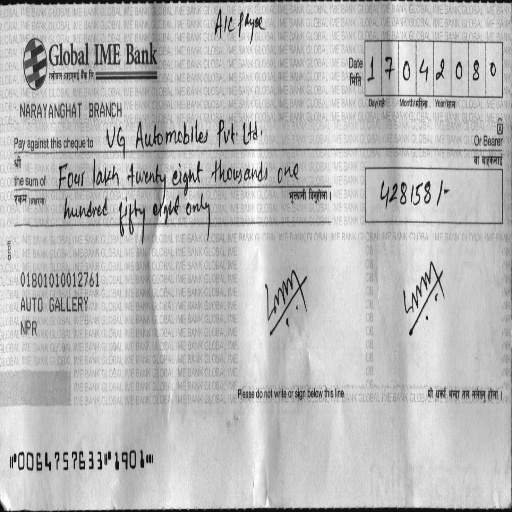 A/C Payee
Global IME Bank
ग्लोबल आइएमई बैंक लि.
Date 17042080
मिति
Day/गते Month/महिना Year/साल
NARAYANGHAT BRANCH
Pay against this cheque to VG Automobiles Pvt. Ltd. Or Bearer
श्री वा वाहकलाई
the sum of Four lakh twenty eight thousands one
रकम (अक्षरमा) भुक्तानी दिनुहोला।
hundred fifty eight only
428158/-
01801010012761
AUTO GALLERY
NPR
Please do not write or sign below this line
यो धर्सा भन्दा तल नलेख्नु होला।
⑈0064757633⑈1901⑈